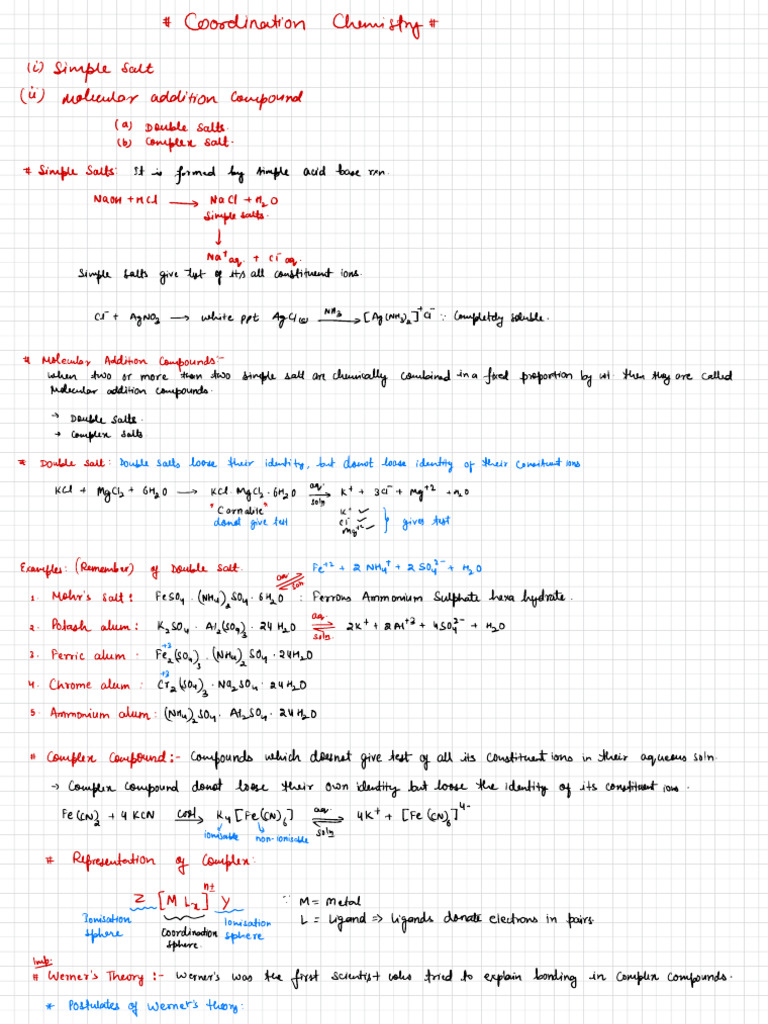 # Coordination Chemistry #
(i) Simple Salt
(ii) Molecular addition Compound
(a) Double Salts.
(b) Complex Salt.
# Simple Salts: It is formed by simple acid base rxn.
NaOH + HCl ⟶ NaCl + H₂O
Simple Salts.
↓
Na⁺aq. + Cl⁻aq.
Simple Salts give test of its all constituent ions.
Cl⁻ + AgNO₃ ⟶ white ppt AgCl(s) —NH₃→ [Ag(NH₃)₂]⁺Cl⁻ ∵ Completely soluble.
# Molecular Addition Compounds:-
When two or more than two simple salt are chemically combined in a fixed proportion by wt. then they are called
Molecular addition compounds.
→ Double Salts.
→ Complex Salts
* Double Salt: Double Salts loose their identity, but donot loose identity of their constituent ions
KCl + MgCl₂ + 6H₂O ⟶ KCl·MgCl₂·6H₂O ⇌ aq. soln K⁺ + 3Cl⁻ + Mg⁺² + H₂O
"Carnalite" K⁺ ✓
donot give test Cl⁻ ✓ } gives test
Mg⁺² ✓
Examples: (Remember) of Double Salt. aq. ⇌ soln Fe⁺² + 2NH₄⁺ + 2SO₄²⁻ + H₂O
1. Mohr's Salt: FeSO₄·(NH₄)₂SO₄·6H₂O : Ferrous Ammonium Sulphate hexa hydrate.
2. Potash alum: K₂SO₄·Al₂(SO₄)₃·24H₂O ⇌ aq. soln. 2K⁺ + 2Al⁺³ + 4SO₄²⁻ + H₂O
+3
3. Ferric alum: Fe₂(SO₄)₃·(NH₄)₂SO₄·24H₂O
+3
4. Chrome alum: Cr₂(SO₄)₃·Na₂SO₄·24H₂O
5. Ammonium alum: (NH₄)₂SO₄·Al₂SO₄·24H₂O
# Complex Compound:- Compounds which doesnot give test of all its constituent ions in their aqueous soln.
→ Complex compound donot loose their own identity but loose the identity of its constituent ions.
Fe(CN)₂ + 4KCN ⟶ K₄[Fe(CN)₆] ⇌ aq. soln 4K⁺ + [Fe(CN)₆]⁴⁻
ionisable non-ionisable
# Representation of Complex:
Z [MLₓ]ⁿ± Y ∵ M = Metal
Ionisation sphere Coordination sphere. Ionisation sphere L = Ligand ⇒ Ligands donate electrons in pairs.
Imp:
# Werner's Theory:- Werner's was the first scientist who tried to explain bonding in complex compounds.
* Postulates of Werner's theory: